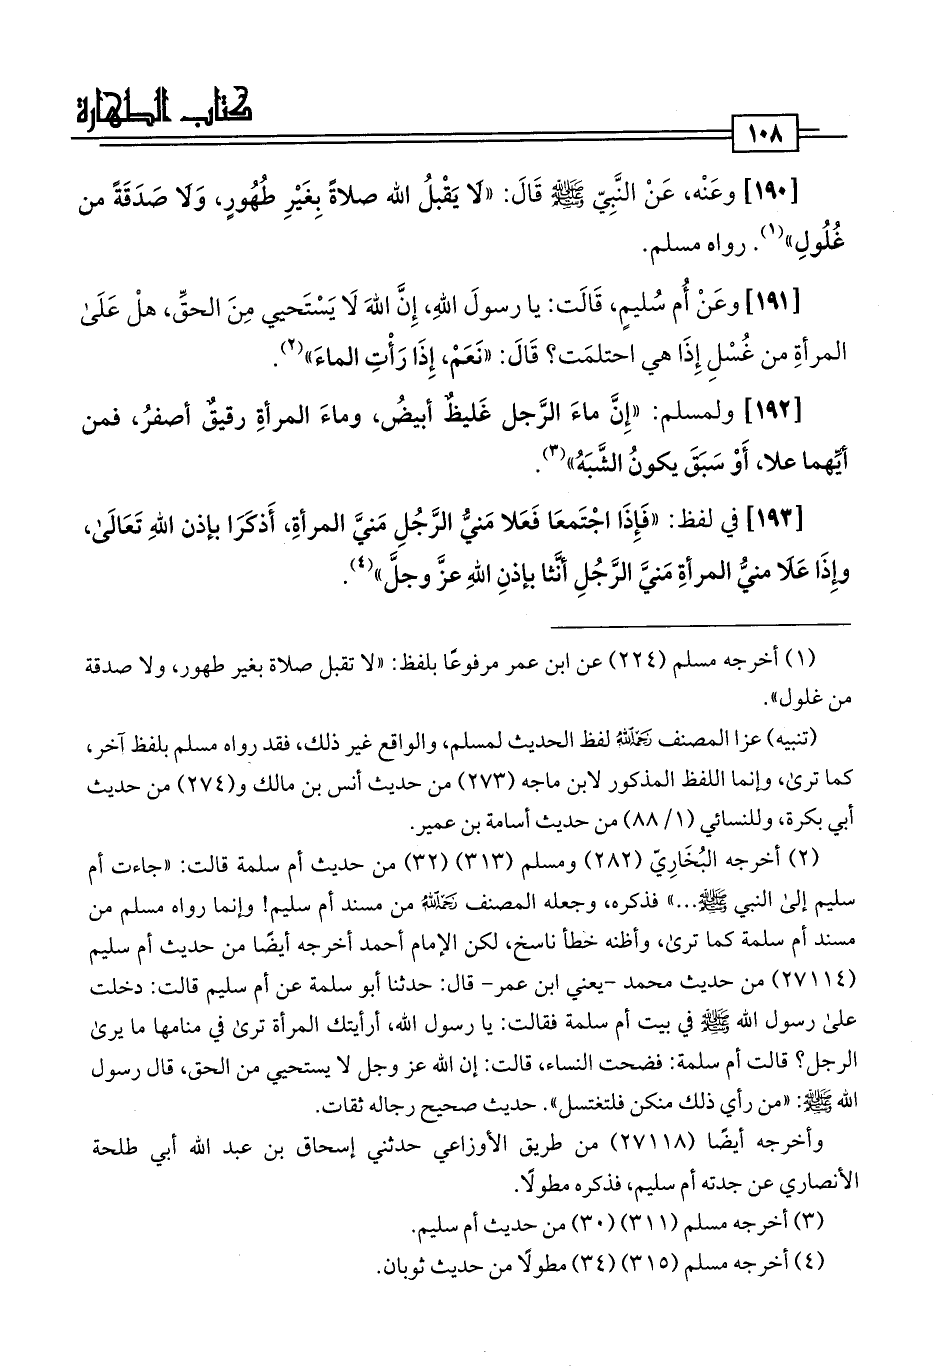 كتاب الطهارة
١٠٨
[١٩٠] وعَنْه، عَنْ النَّبِيّ ﷺ قَالَ: «لَا يَقْبلُ الله صلاةً بِغَيْرِ طُهُورٍ، وَلَا صَدَقَةً من
غُلُولِ»(١). رواه مسلم.
[١٩١] وعَنْ أُم سُليمٍ، قَالَت: يا رسولَ اللهِ، إِنَّ اللهَ لَا يَسْتَحيي مِنَ الحقِّ، هل عَلَىٰ
المرأةِ من غُسْلٍ إِذَا هي احتلمَت؟ قَالَ: «نَعَمْ، إِذَا رَأْتِ الماءَ»(٢).
[١٩٢] ولمسلم: «إِنَّ ماءَ الرَّجل غَليظٌ أبيضُ، وماءَ المرأةِ رقيقٌ أصفرُ، فمن
أيّهما علا، أَوْ سَبَقَ يكونُ الشَّبَهُ»(٣).
[١٩٣] في لفظ: «فَإِذَا اجْتَمعَا فَعَلا مَنيُّ الرَّجُلِ مَنيَّ المرأةِ، أَذكَرَا بإذن اللهِ تَعَالَىٰ،
وإِذَا عَلَا منيُّ المرأةِ مَنيَّ الرَّجُلِ أنَّثا بإذنِ اللهِ عزَّ وجلَّ»(٤).
(١) أخرجه مسلم (٢٢٤) عن ابن عمر مرفوعًا بلفظ: «لا تقبل صلاة بغير طهور، ولا صدقة
من غلول».
(تنبيه) عزا المصنف رَحِمَهُ اللهُ لفظ الحديث لمسلم، والواقع غير ذلك، فقد رواه مسلم بلفظ آخر،
كما ترىٰ، وإنما اللفظ المذكور لابن ماجه (٢٧٣) من حديث أنس بن مالك و(٢٧٤) من حديث
أبي بكرة، وللنسائي (١/ ٨٨) من حديث أسامة بن عمير.
(٢) أخرجه البُخَارِيّ (٢٨٢) ومسلم (٣١٣) (٣٢) من حديث أم سلمة قالت: «جاءت أم
سليم إلىٰ النبي ﷺ...» فذكره، وجعله المصنف رَحِمَهُ اللهُ من مسند أم سليم! وإنما رواه مسلم من
مسند أم سلمة كما ترىٰ، وأظنه خطأ ناسخ، لكن الإمام أحمد أخرجه أيضًا من حديث أم سليم
(٢٧١١٤) من حديث محمد -يعني ابن عمر- قال: حدثنا أبو سلمة عن أم سليم قالت: دخلت
علىٰ رسول الله ﷺ في بيت أم سلمة فقالت: يا رسول الله، أرأيتك المرأة ترىٰ في منامها ما يرىٰ
الرجل؟ قالت أم سلمة: فضحت النساء، قالت: إن الله عز وجل لا يستحيي من الحق، قال رسول
الله ﷺ: «من رأي ذلك منكن فلتغتسل». حديث صحيح رجاله ثقات.
وأخرجه أيضًا (٢٧١١٨) من طريق الأوزاعي حدثني إسحاق بن عبد الله أبي طلحة
الأنصاري عن جدته أم سليم، فذكره مطولًا.
(٣) أخرجه مسلم (٣١١) (٣٠) من حديث أم سليم.
(٤) أخرجه مسلم (٣١٥) (٣٤) مطولًا من حديث ثوبان.